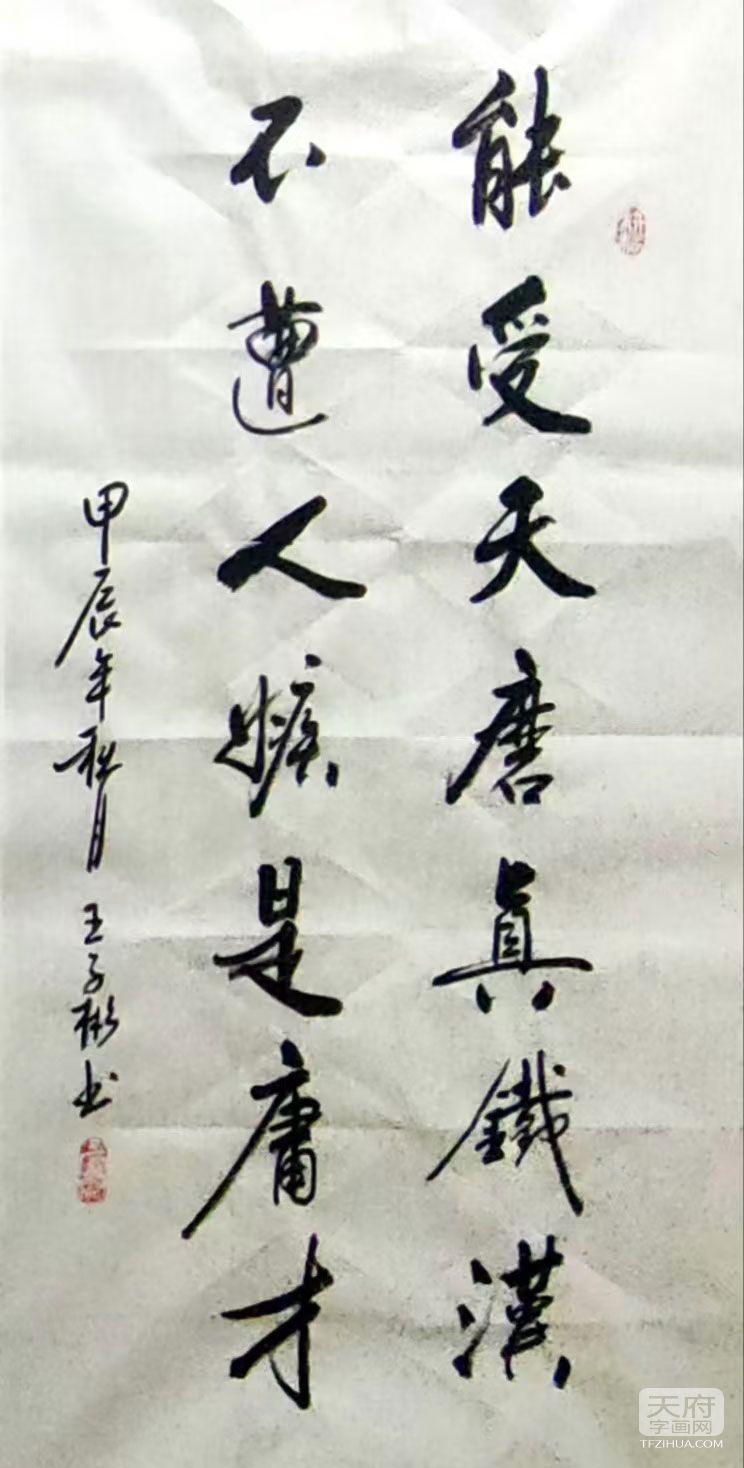 能受天磨真鐵漢
不遭人嫉是庸才
甲辰年秋月 王子彬书
天府
字画网
TFZIHUA.COM